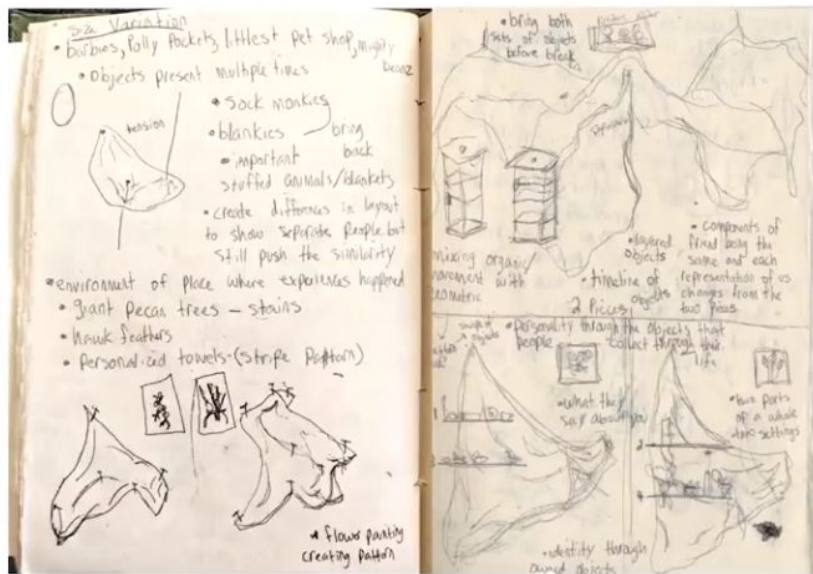 Size Variation
• barbies, Polly Pockets, littlest pet shop, mighty
beanz
• Objects present multiple times
tension
• sock monkies
• blankies
bring
back
• important
stuffed animals/blankets
• create differences in layout
to show separate people but
still push the similarity
• environment of place where experiences happened
• giant pecan trees - stains
• hawk feathers
• Personalized towels - (stripe pattern)
* flower painting
creating pattern
• bring both
sets of objects
before break
mixing organic
movement with
geometric
• layered
objects
• timeline of
objects
2 Pieces
• components of
friend being the
same and each
representation of us
changes from the
two pieces
• Personality through the objects that
people collect through their
life
• what they
say about you
• two parts
of a whole
two settings
• identity through
owned objects